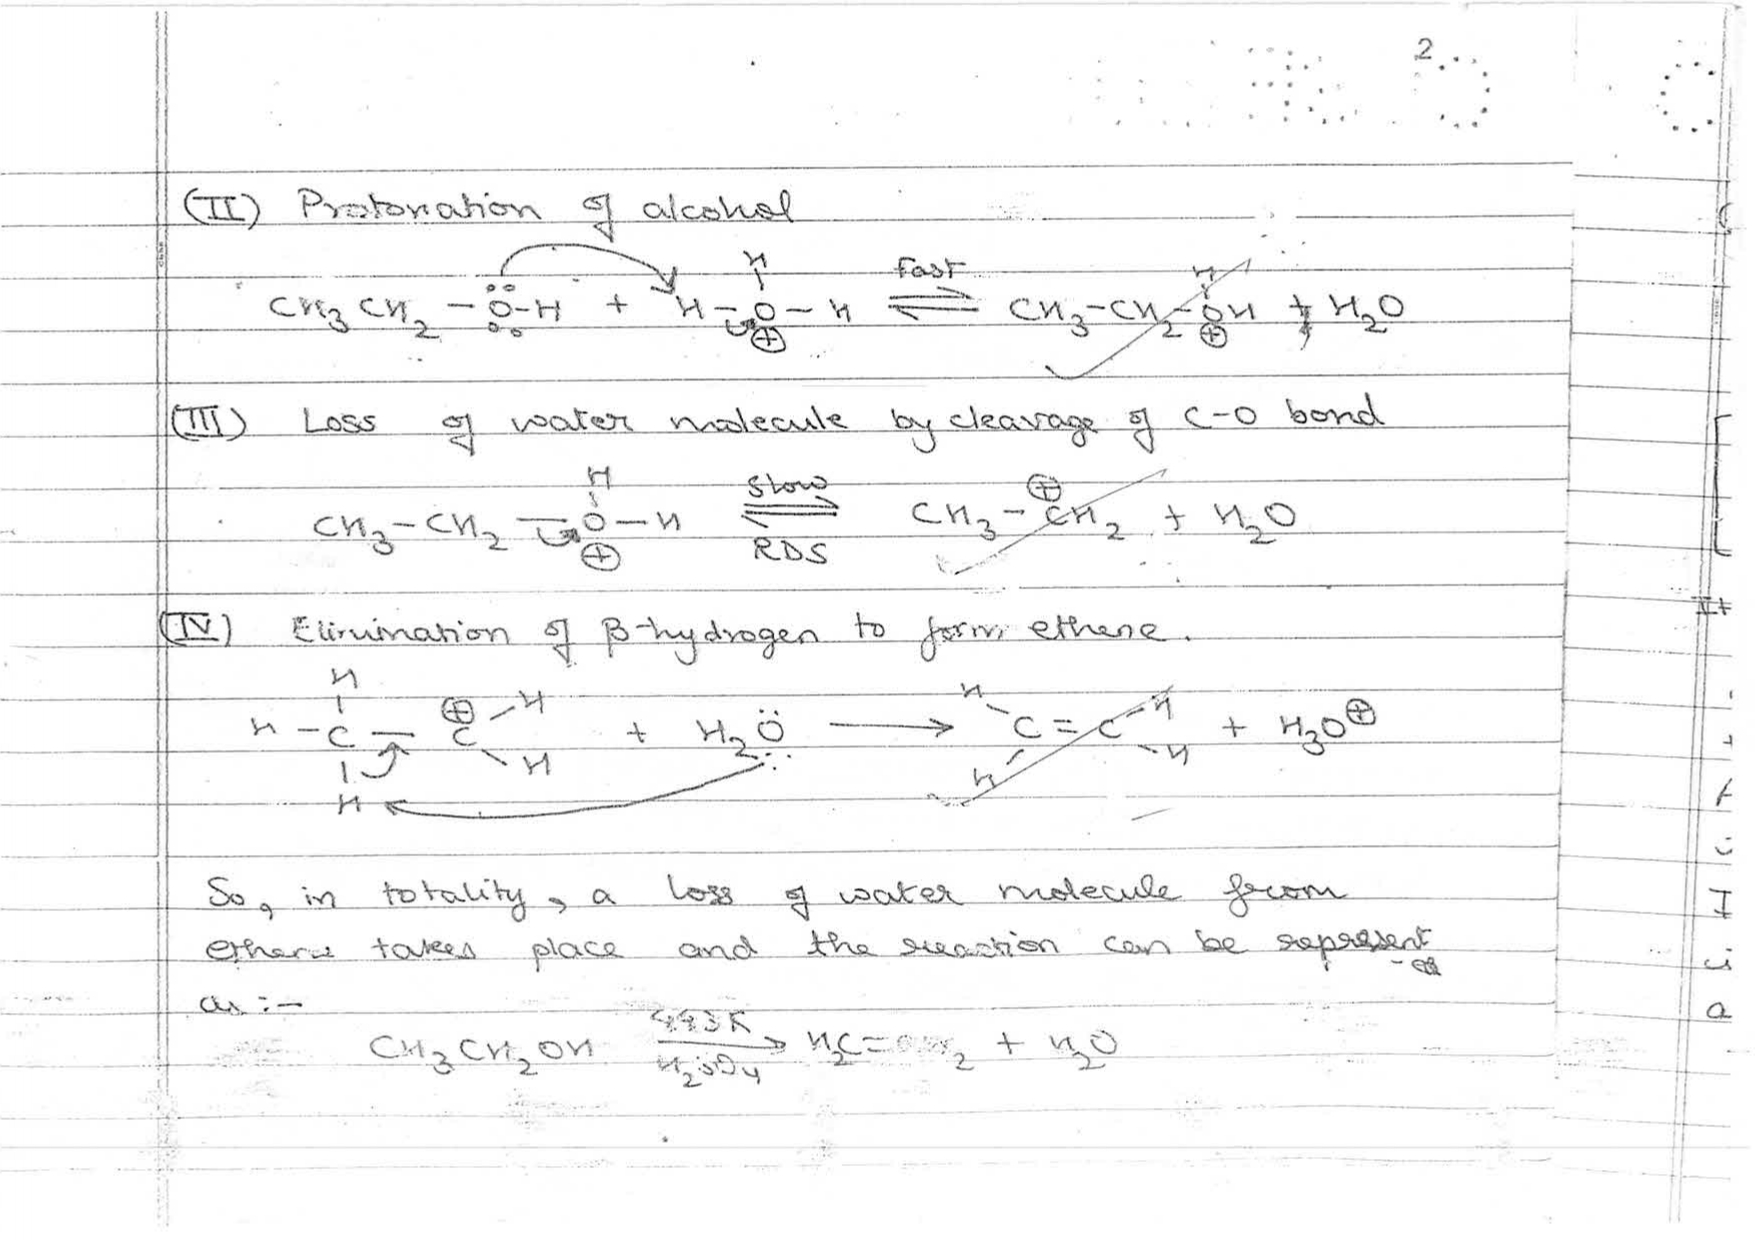 2
(II) Protonation of alcohol
CH3CH2-Ö-H + H-O-H ⇌ CH3-CH2-OH + H2O
H
⊕
Fast
H
⊕
(III) Loss of water molecule by cleavage of C-O bond
CH3-CH2-O-H ⇌ CH3-CH2 + H2O
H
⊕
Slow
RDS
⊕
(IV) Elimination of β-hydrogen to form ethene.
H
H-C-C⊕ H + H2Ö → H C=C H + H3O⊕
H
H
H
H
So, in totality, a loss of water molecule from
ethene takes place and the reaction can be represent
-ed
as :-
443K
CH3CH2OH → H2C=CH2 + H2O
H2SO4